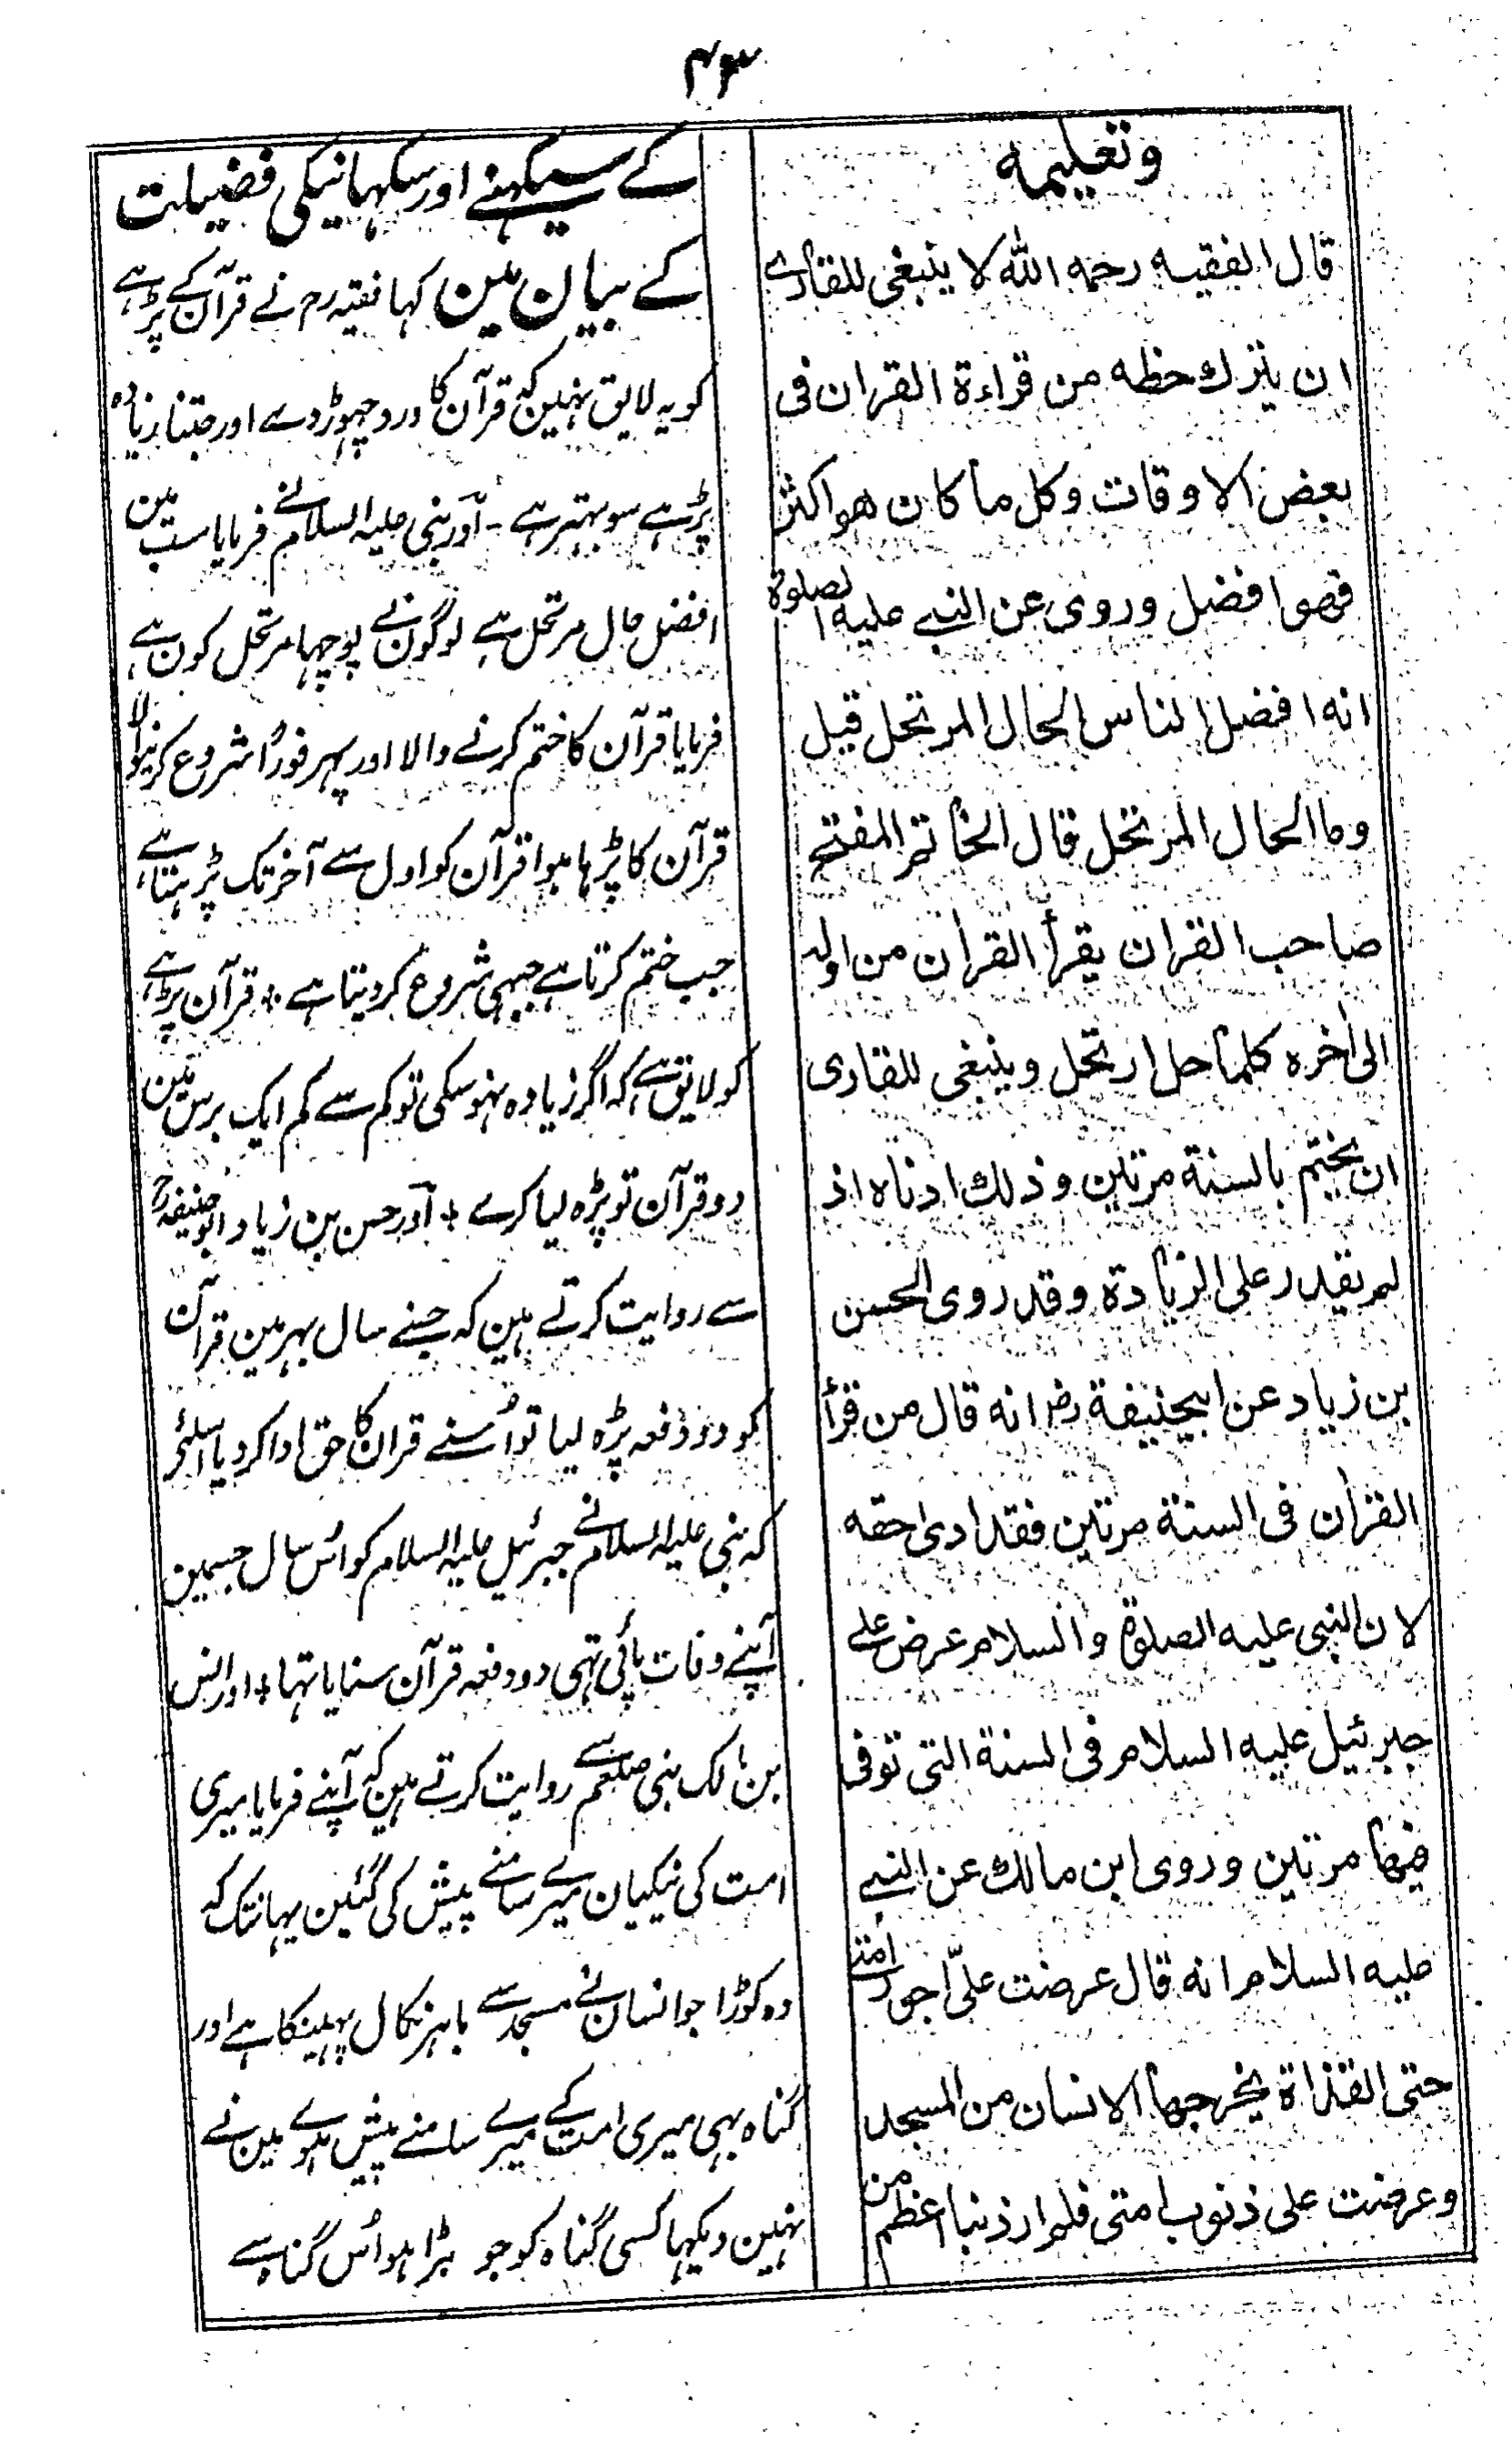 ۴۳
وتعلیمه
قال الفقیه رحمه الله لا ینبغی للقاری
ان یترك حظه من قراءة القران فی
بعض الاوقات وكل ما كان هو اكثر
فهو افضل وروی عن النبی علیه الصلوة
انه افضل الناس الحال المرتحل قیل
وما الحال المرتحل قال الخاتم المفتتح
صاحب القران یقرأ القرأن من اوله
الی أخره كلما حل ارتحل وینبغی للقاری
ان یختم بالسنة مرتین وذلك ادناه اذ
لم یقدر علی الزیادة وقد روی الحسن
بن زیاد عن ابیحنیفة رض انه قال من قرأ
القرأن فی السنة مرتین فقد ادی حقه
لان النبی علیه الصلوة والسلام عرض علے
جبرئیل علیه السلام فی السنة التی توفی
فیها مرتین وروی ابن مالك عن النبے
علیه السلام انه قال عرضت علیّ اجور امتے
حتی القذاة یخرجها الانسان من المسجد
وعرضت علی ذنوب امتی فلم ار ذنبا اعظم من
کے سیکہنے اور سکہانیکی فضیلت
کے بیان مین کہا فقیہ رح نے قرآن کے پڑہے
کو یہ لایق نہین کہ قرآن کا ورد چہوڑ دے اور جتنا زیادہ
پڑہے سو بہتر ہے - اور نبی علیہ السلام نے فرمایا سب مین
افضل حال مرتحل ہے لوگون نے پوچہا مرتحل کون ہے
فرمایا قرآن کا ختم کرنے والا اور پہر فوراً شروع کرنیوالا
قرآن کا پڑہا ہوا قرآن کو اول سے آخر تک پڑہتا ہے
جب ختم کرتا ہے جبہی شروع کر دیتا ہے ٭ قرآن پڑہے
کو لایق ہے کہ اگر زیادہ نہو سکی تو کم سے کم ایک برس مین
دو قرآن تو پڑہ لیا کرے ٭ اور حسن بن زیاد ابو حنیفہ رح
سے روایت کرتے ہین کہ جسنے سال بہر مین قرآن
کو دو دفعہ پڑہ لیا تو اُسنے قران کا حق ادا کر دیا اسلئے
کہ نبی علیہ السلام نے جبرئیل علیہ السلام کو اُس سال جسمین
آپنے وفات پائی تہی دو دفعہ قرآن سنایا تہا ٭ اور انس
بن مالک نبی صلعم سے روایت کرتے ہین کہ آپنے فرمایا میری
امت کی نیکیان میرے سامنے پیش کی گئین یہانتک کہ
وہ کوڑا جو انسان نے مسجد سے باہر نکال پہینکا ہے اور
گناہ بہی میری امت کے میرے سامنے پیش ہوے مین نے
نہین دیکہا کسی گناہ کو جو بڑا ہو اُس گناہ سے